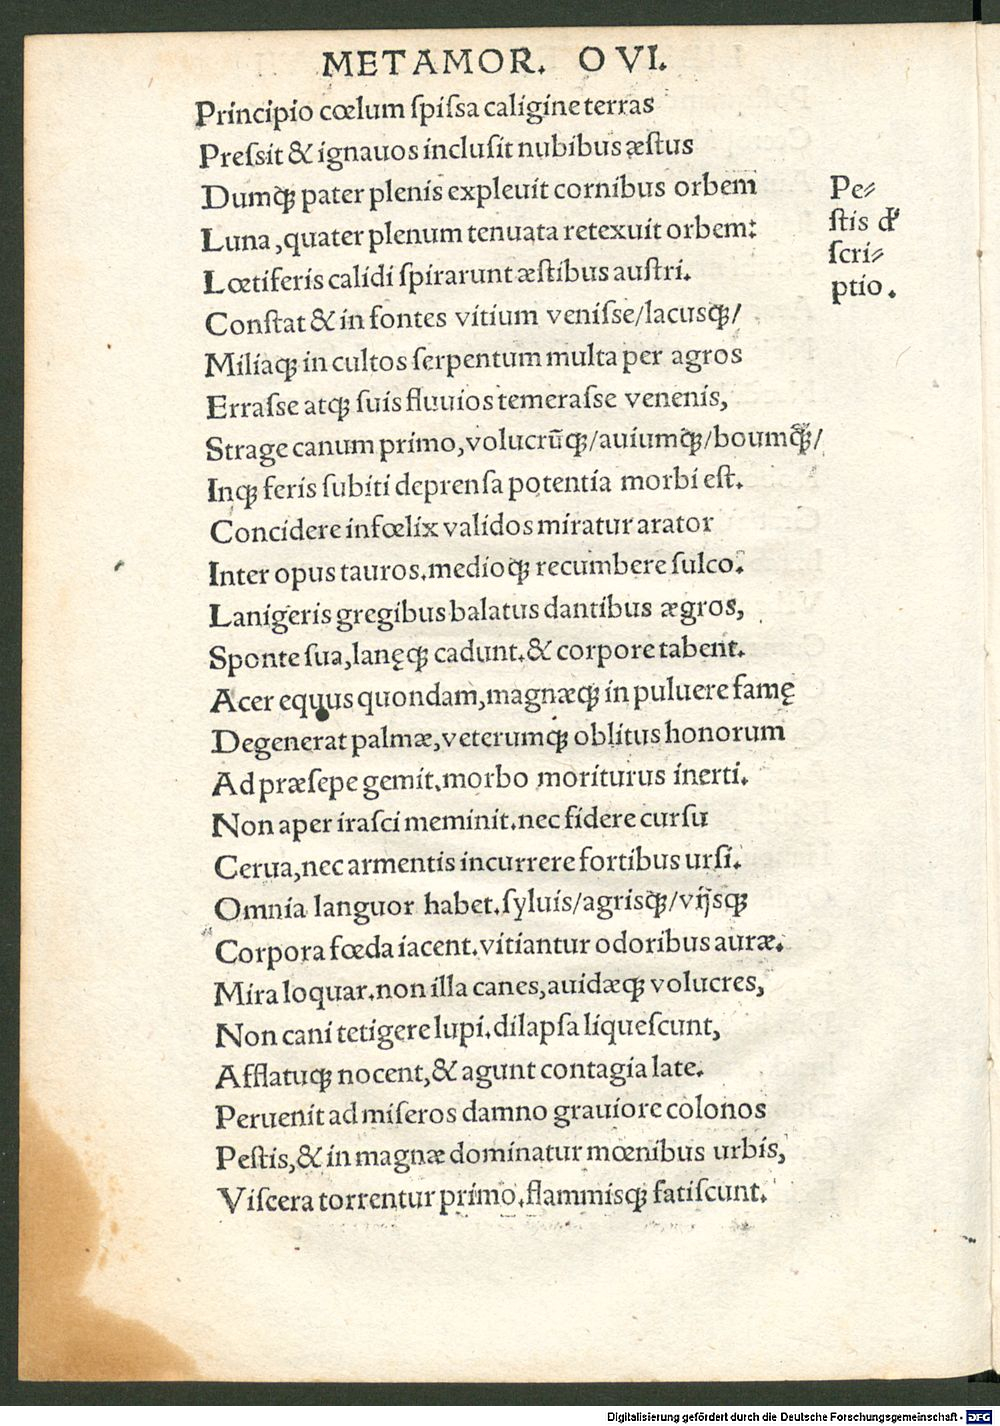 METAMOR. OVI.
Principio cœlum ſpiſsa caligine terras
Preſsit & ignauos incluſit nubibus æſtus
Dumqꝫ pater plenis expleuit cornibus orbem
Luna, quater plenum tenuata retexuit orbem:
Lœtiferis calidi ſpirarunt æſtibus auſtri.
Conſtat & in fontes vitium veniſse/lacusqꝫ/
Miliaqꝫ in cultos ſerpentum multa per agros
Erraſse atqꝫ ſuis fluuios temeraſse venenis,
Strage canum primo, volucrūqꝫ/auiumqꝫ/boumqꝫ/
Inqꝫ feris ſubiti deprenſa potentia morbi eſt.
Concidere infœlix validos miratur arator
Inter opus tauros.medioqꝫ recumbere ſulco.
Lanigeris gregibus balatus dantibus ægros,
Sponte ſua, lanęqꝫ cadunt.& corpore tabent.
Acer equus quondam, magnæqꝫ in puluere famę
Degenerat palmæ, veterumqꝫ oblitus honorum
Ad præſepe gemit.morbo moriturus inerti.
Non aper iraſci meminit.nec fidere curſu
Cerua, nec armentis incurrere fortibus urſi.
Omnia languor habet.ſyluis/agrisqꝫ/vijsqꝫ
Corpora fœda iacent.vitiantur odoribus auræ.
Mira loquar.non illa canes, auidæqꝫ volucres,
Non cani tetigere lupi.dilapſa liqueſcunt,
Afflatuqꝫ nocent, & agunt contagia late.
Peruenit ad miſeros damno grauiore colonos
Peſtis, & in magnæ dominatur mœnibus urbis,
Viſcera torrentur primo.flammisqꝫ fatiſcunt.
Pe⸗
ſtis d'
ſcri⸗
ptio.
Digitalisierung gefördert durch die Deutsche Forschungsgemeinschaft - DFG